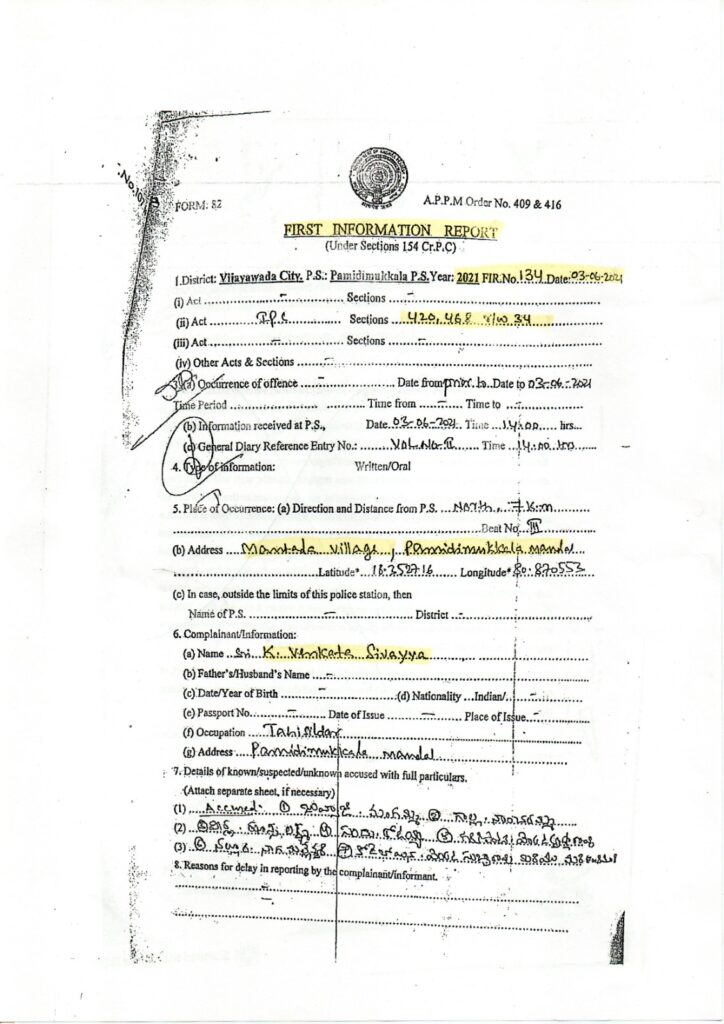 FORM: 82
A.P.P.M Order No. 409 & 416
FIRST INFORMATION REPORT
(Under Sections 154 Cr.P.C)
1.District: Vijayawada City. P.S.: Pamidimukkala P.S.Year: 2021 FIR.No.134 Date:03-06-2021
(i) Act ........ - ........ Sections ........ - ........
(ii) Act ........ I.P.C ........ Sections ... 420, 468 r/w 34 ........
(iii) Act ........ - ........ Sections ........ - ........
(iv) Other Acts & Sections ........ - ........
(a) Occurrence of offence ..... - ..... Date from prior to Date to 03-06-2021
Time Period ........ Time from .... - .... Time to .. - ..
(b) Information received at P.S., Date.03-06-2021. Time ..14:00.... hrs...
General Diary Reference Entry No.: ........ VOL-NO-II .... Time .14:00 hrs
4. Type of information: Written/Oral
5. Place of Occurrence: (a) Direction and Distance from P.S. ...North, 7 K.m
Beat No. III
(b) Address ....Mantada Village, Pamidimukkala mandal
Latitude* ..16.252716........ Longitude* 80.870553
(c) In case, outside the limits of this police station, then
Name of P.S. ........ - ........ District .. - ........
6. Complainant/Information:
(a) Name ..Sri. K. Venkata Sivayya
(b) Father's/Husband's Name ... - ........
(c) Date/Year of Birth ........ - ........ (d) Nationality ...Indian/.. - ....
(e) Passport No. ........ - ........ Date of Issue ........ - ........ Place of Issue.. - ....
(f) Occupation ....Tahsildar
(g) Address ....Pamidimukkala mandal
7. Details of known/suspected/unknown accused with full particulars.
(Attach separate sheet, if necessary)
(1) .... Accused: ①
(2)
(3)
8. Reasons for delay in reporting by the complainant/informant.